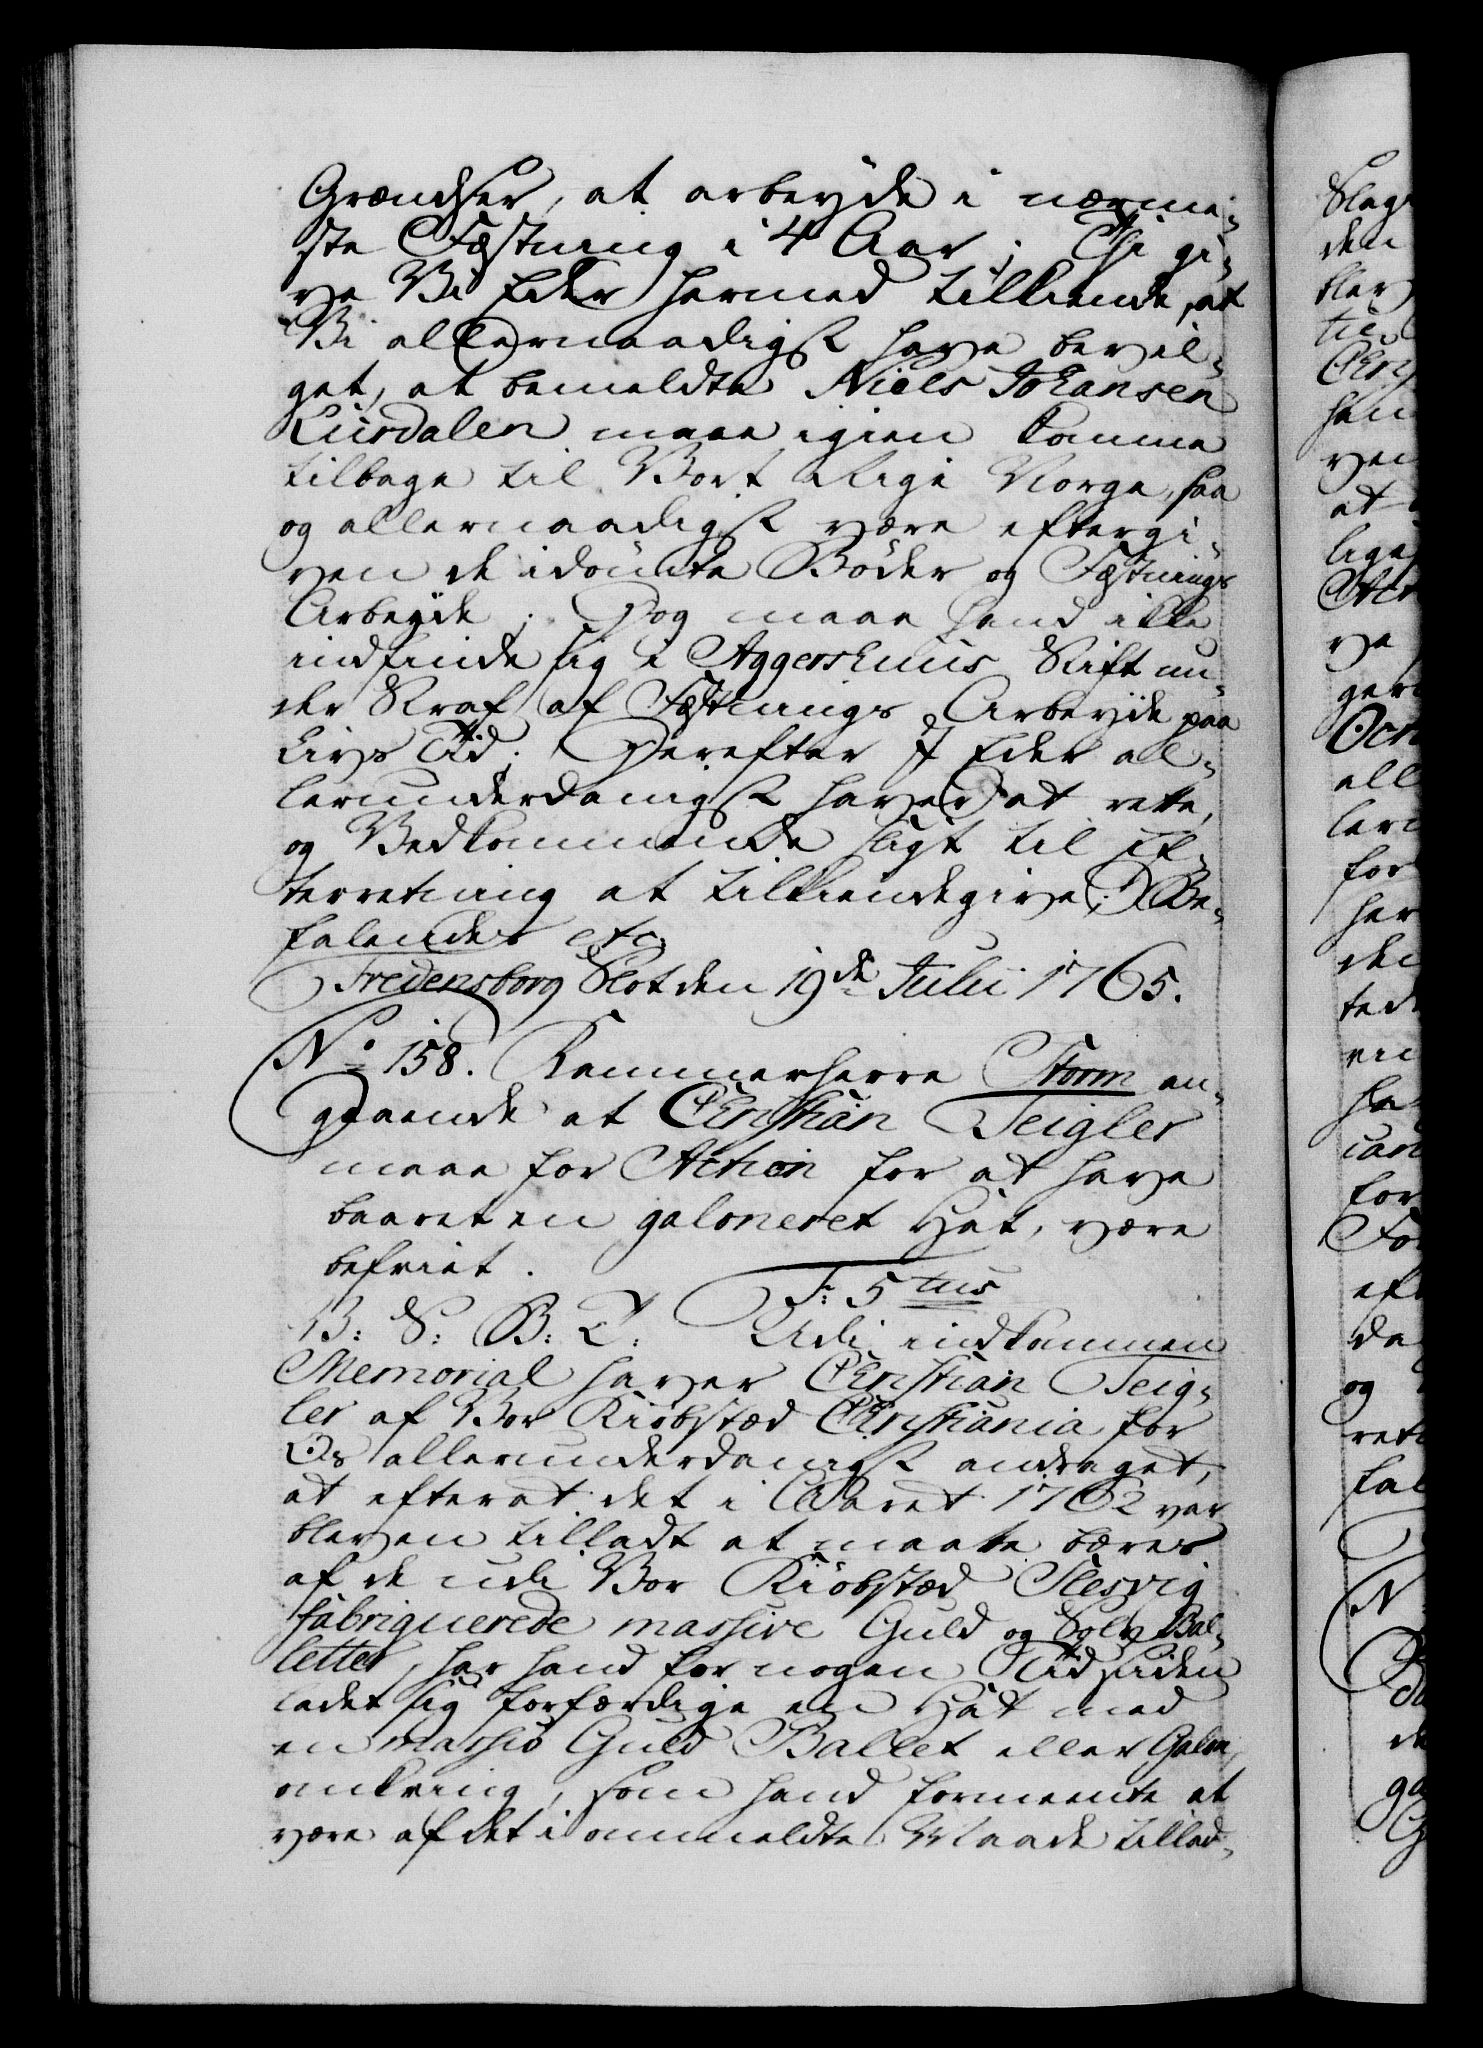 Grændser, at arbeyde i nærme-
ste Fæstning i 4 Aar; Thi gi-
ve Vi Eder hermed tilkiende, at
Vi allernaadigst have bevil-
get, at bemeldte Niels Johansen
Liusdalen maae igien komme
tilbage til Vort Rige Norge, saa
og allernaadigst være eftergi-
ven de idömte Böder og Fæstnings
Arbeyde; Dog maae hand ikke
indfinde sig i Aggershuus Stift un-
der Straf af Fæstnings Arbeyde paa
Livs Tid. Derefter I Eder al-
lerunderdanigst haver at rette,
og Vedkommende sligt til Ef-
terretning at tilkiendegive; Be-
falendes etc.
Fredensborg Slot den 19de Julii 1765.
No 158. Kammerherre Storm an-
gaaende at Christian Teigler
maae for Action for at have
baaret en galoneret Hat, være
befriet.
F: 5tus
B: S: B: T: Udi indkommen
Memorial haver Christian Teig-
ler af Vor Kiöbstæd Christiania for
Os allerunderdanigst andraget,
at efterat det i Aaret 1762 var
bleven tilladt at maatte bæres
af de udi Vor Kiöbstæd Slesvig
fabriquerede massive Guld og Sölv Bal-
letter, har hand for nogen Tid siden
ladet sig forfærdige en Hat med
en massiv Guld Ballet eller Galon
omkring, som hand formeente at
være af det i ommeldte Maade tillad-